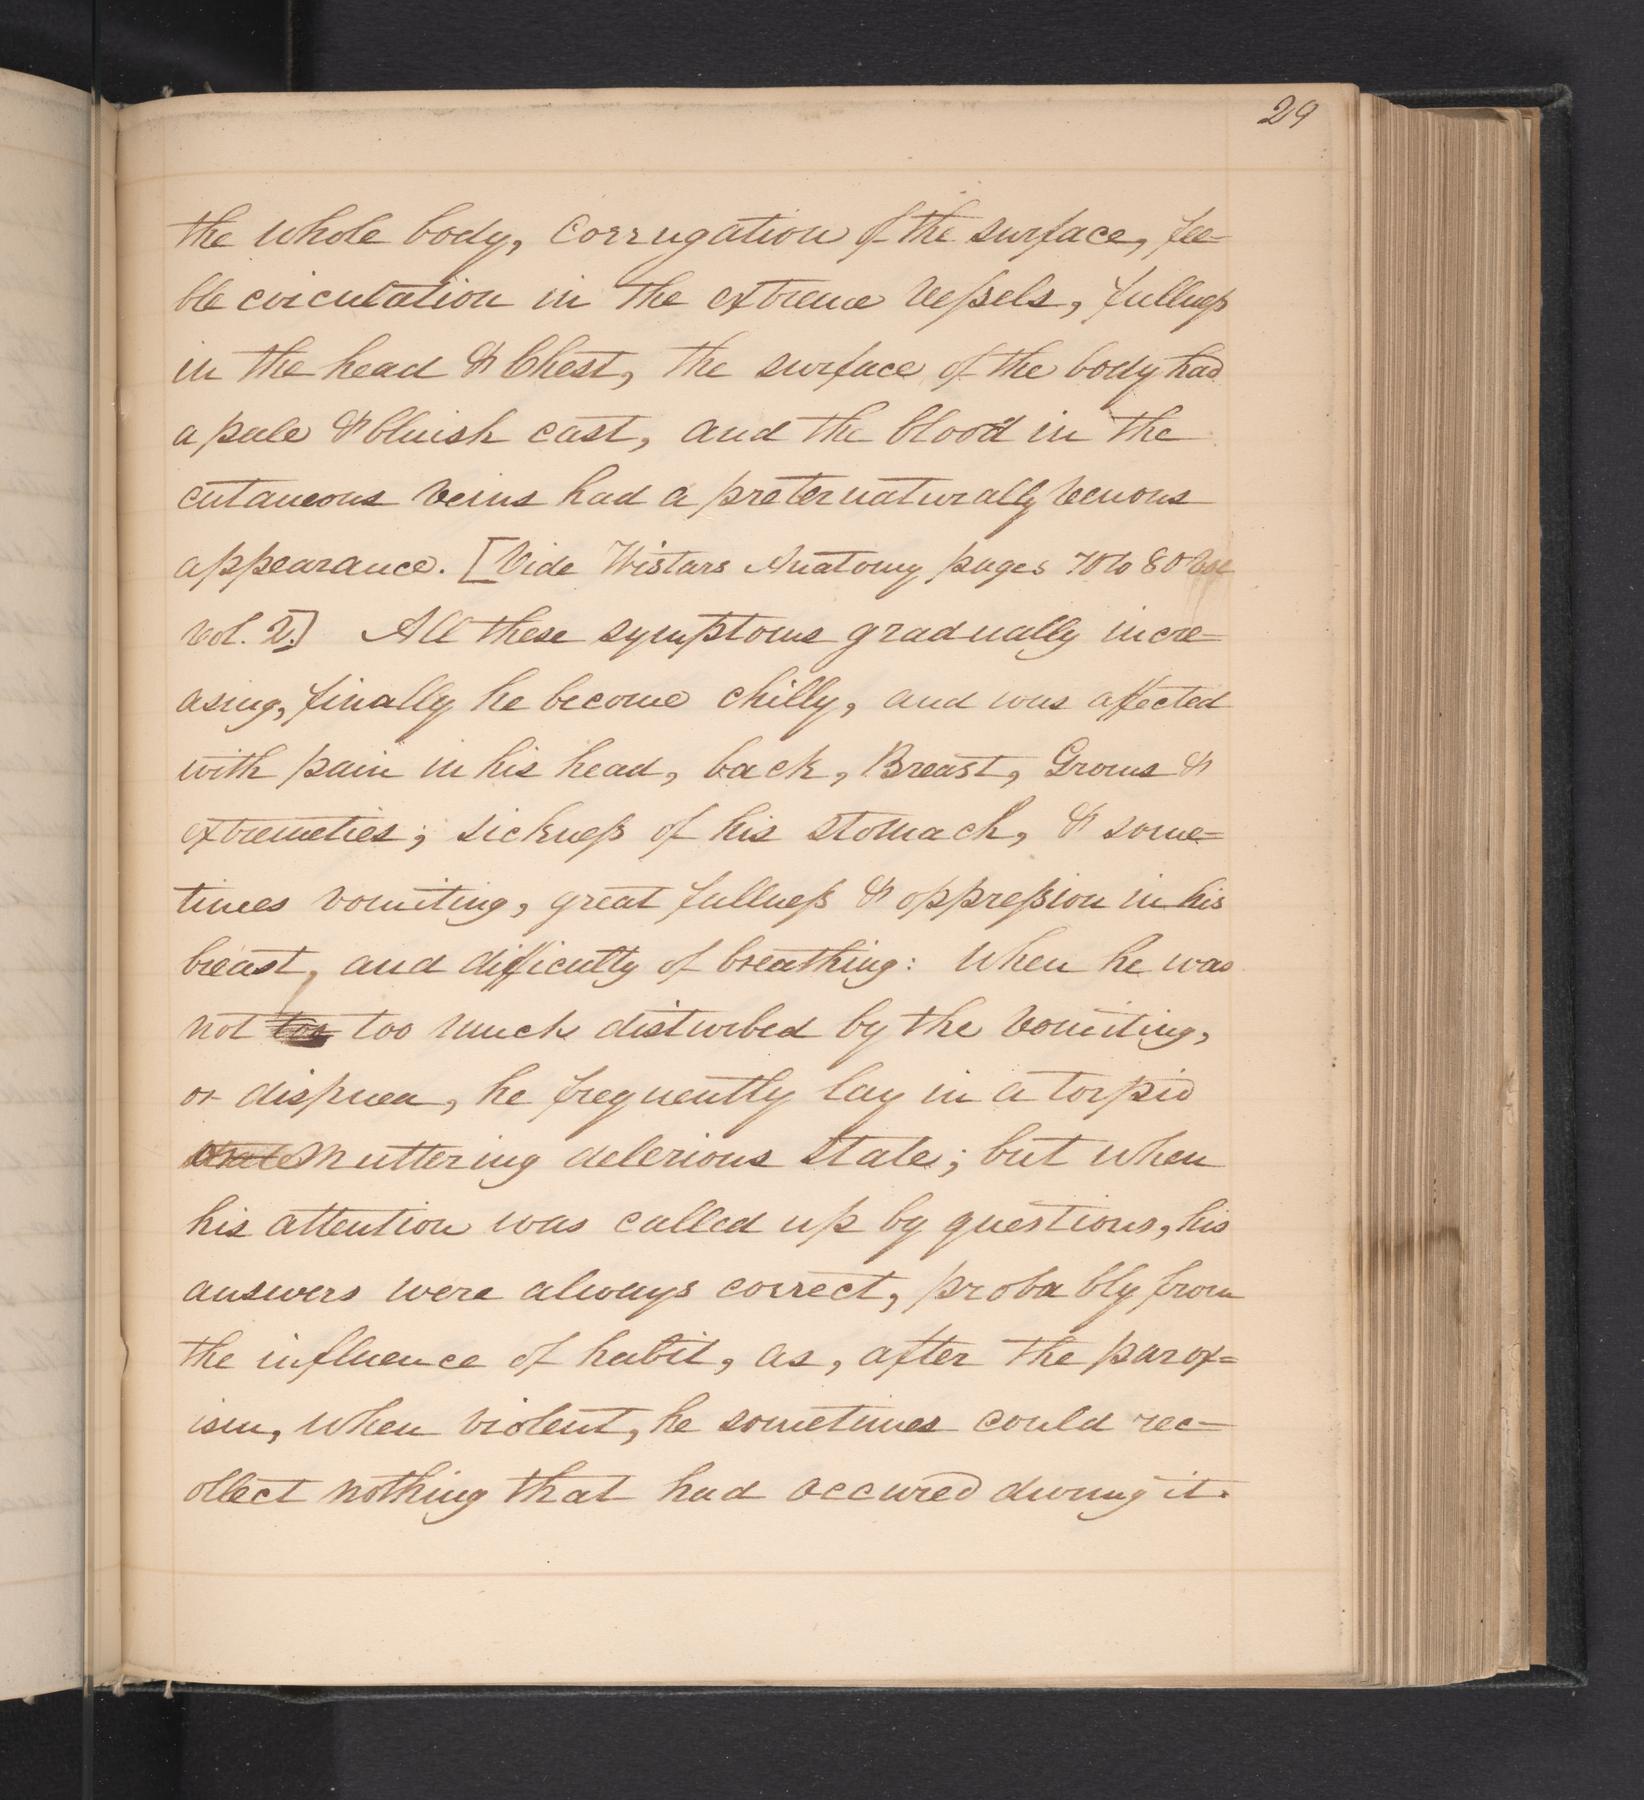 29
the whole body, corrugation of the surface, fee=
ble circulation in the extreme vessels, fullness
in the head & Chest, the surface of the body had
a pale & bluish cast, and the blood in the
cutaneous veins had a preternaturally venous
appearance. [Vide Wistars Anatomy pages 70 to 80
vol. 2.] All these symptoms gradually incre=
asing, finally he become chilly, and was affected
with pain in his head, back, Breast, Groins &
extremeties; sickness of his stomach, & some=
times vomiting, great fullness & oppression in his
breast, and difficulty of breathing: When he was
not too too much disturbed by the vomiting,
or dispnea, he frequently lay in a torpid
state muttering delerious state; but when
his attention was called up by questions, his
answers were always correct, probably from
the influence of habit, as, after the parox=
ism, when violent, he sometimes could rec=
ollect nothing that had occured during it.